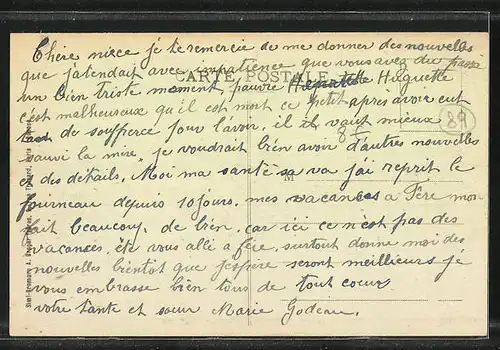 Chère nièce je te remercie de me donner des nouvelles
que j'atendait avec impatience que vous avez du passer
CARTE POSTALE
un bien triste moment, pauvre Huguette
c'est malheureux qu'il est mort ce petit après avoir eut
de soufferce pour l'avoir, il il vaut mieux
sauvi la mère, je voudrait bien avoir d'autres nouvelles
et des détails. Moi ma santé sa va j'ai reprit le
M
fourneau depuis 10 jours, mes vacances a Fère mon
fait beaucoup de bien, car ici ce n'est pas des
vacances, ete vous allé a fère, surtout donne moi des
nouvelles bientot que j'espère seront meilleurs je
vous embrasse bien tous de tout coeur
votre tante et soeur Marie Godeau.
89